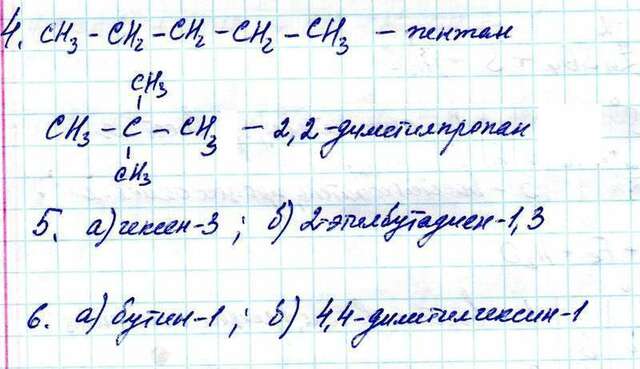 4. CH3 - CH2 - CH2 - CH2 - CH3 - пентан
CH3
CH3 - C - CH3 - 2,2-диметилпропан
CH3
5. а) гексен-3; б) 2-этилбутадиен-1,3
6. а) бутин-1; б) 4,4-диметилгексин-1